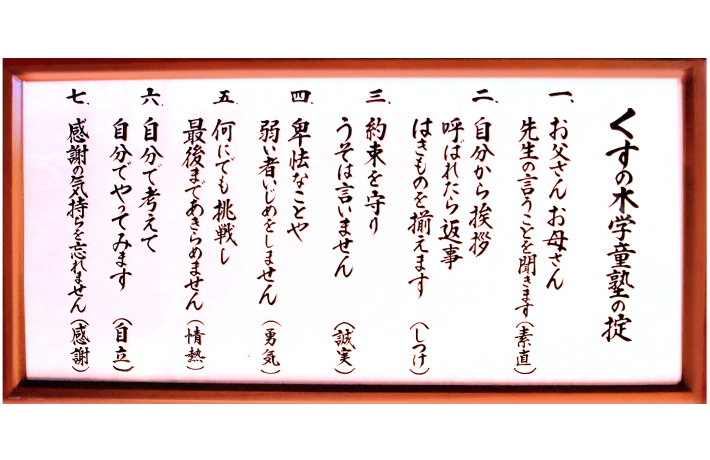 くすの木学童塾の掟
一、お父さんお母さん
先生の言うことを聞きます（素直）
二、自分から挨拶
呼ばれたら返事
はきものを揃えます（しつけ）
三、約束を守り
うそは言いません（誠実）
四、卑怯なことや
弱い者いじめをしません（勇気）
五、何にでも挑戦し
最後まであきらめません（情熱）
六、自分で考えて
自分でやってみます（自立）
七、感謝の気持ちを忘れません（感謝）